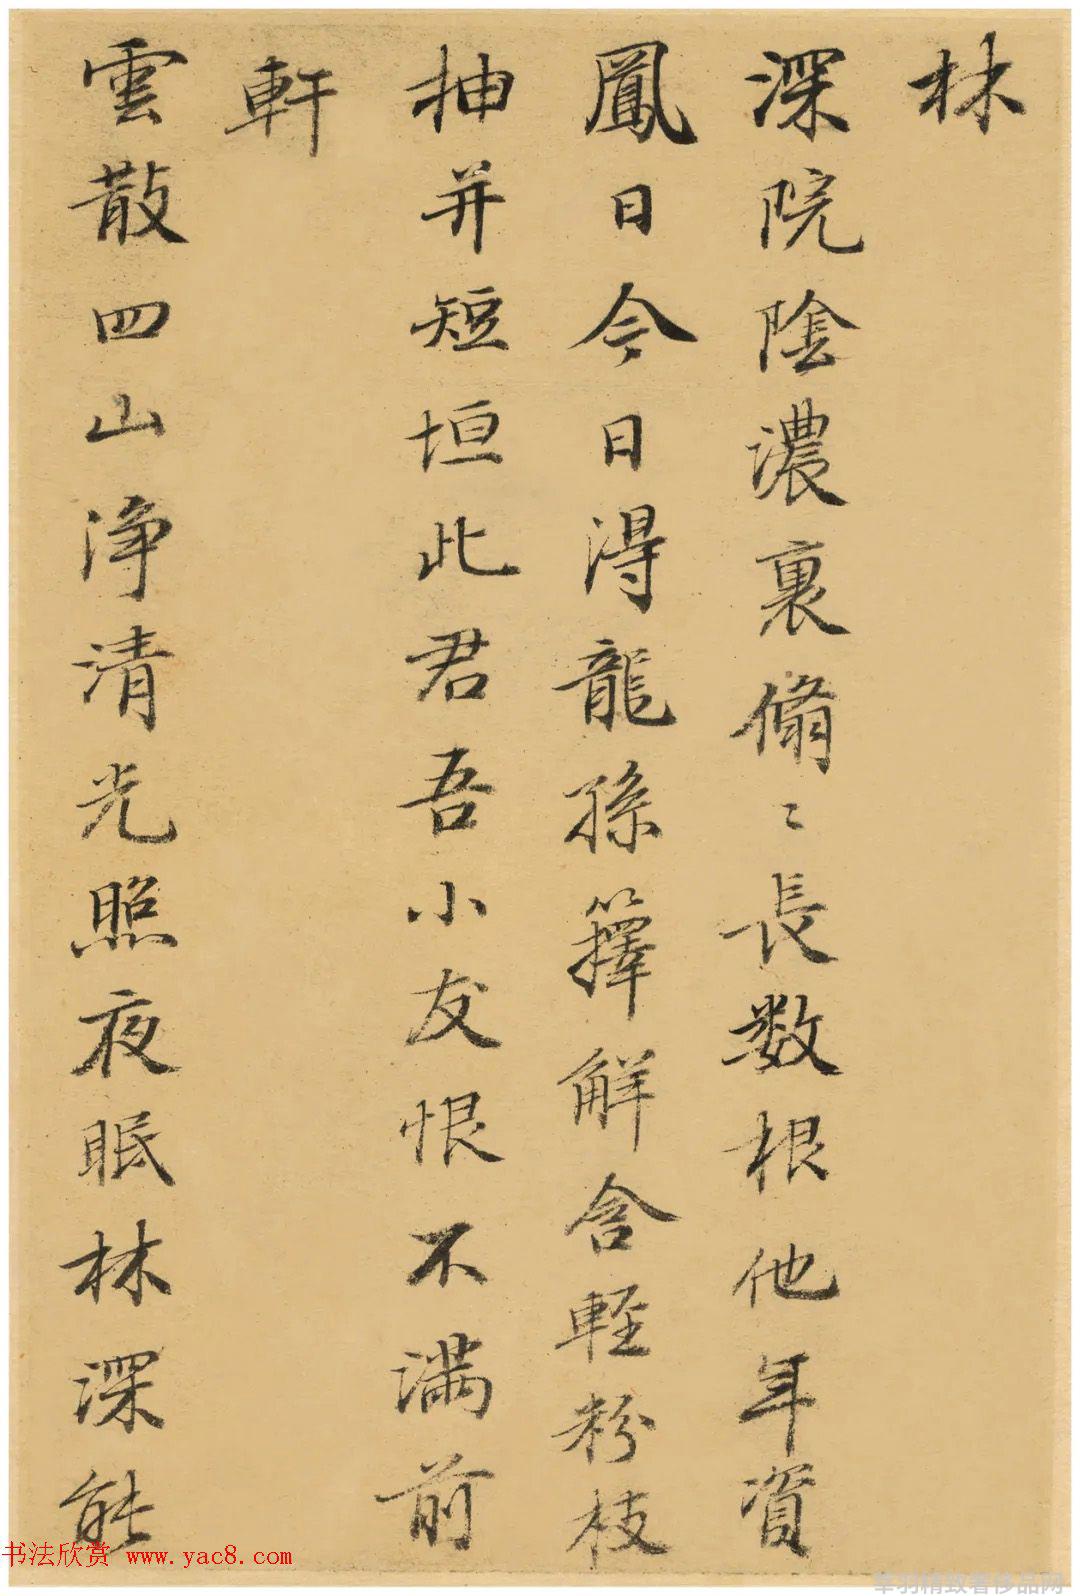 林
深院陰濃裏翛〻長数根他年資
鳳日今日得龍孫籜解含輕粉枝
抽并短垣此君吾小友恨不滿前
軒
雲散四山浄清光照夜眠林深能
书法欣赏 www.yac8.com